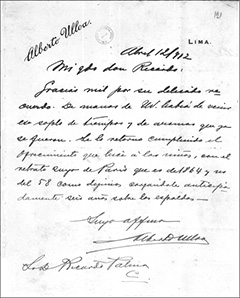 191
Alberto Ulloa.
LIMA.
Abril 12/912
Mi qdo don Ricardo:
Gracias mil por su delicado re
cuerdo. De manos de Ud. había de venir
un soplo de tiempos y de aromas que ya
se fueron. Se lo retorno cumpliendo el
ofrecimiento que hice a las niñas, con el
retrato suyo de París que es de 1864 y no
del 58 como dijimos cargándole anticipa
damente seis años sobre las espaldas.
Suyo affmo
Alberto Ulloa
Sr. D. Ricardo Palma
C.